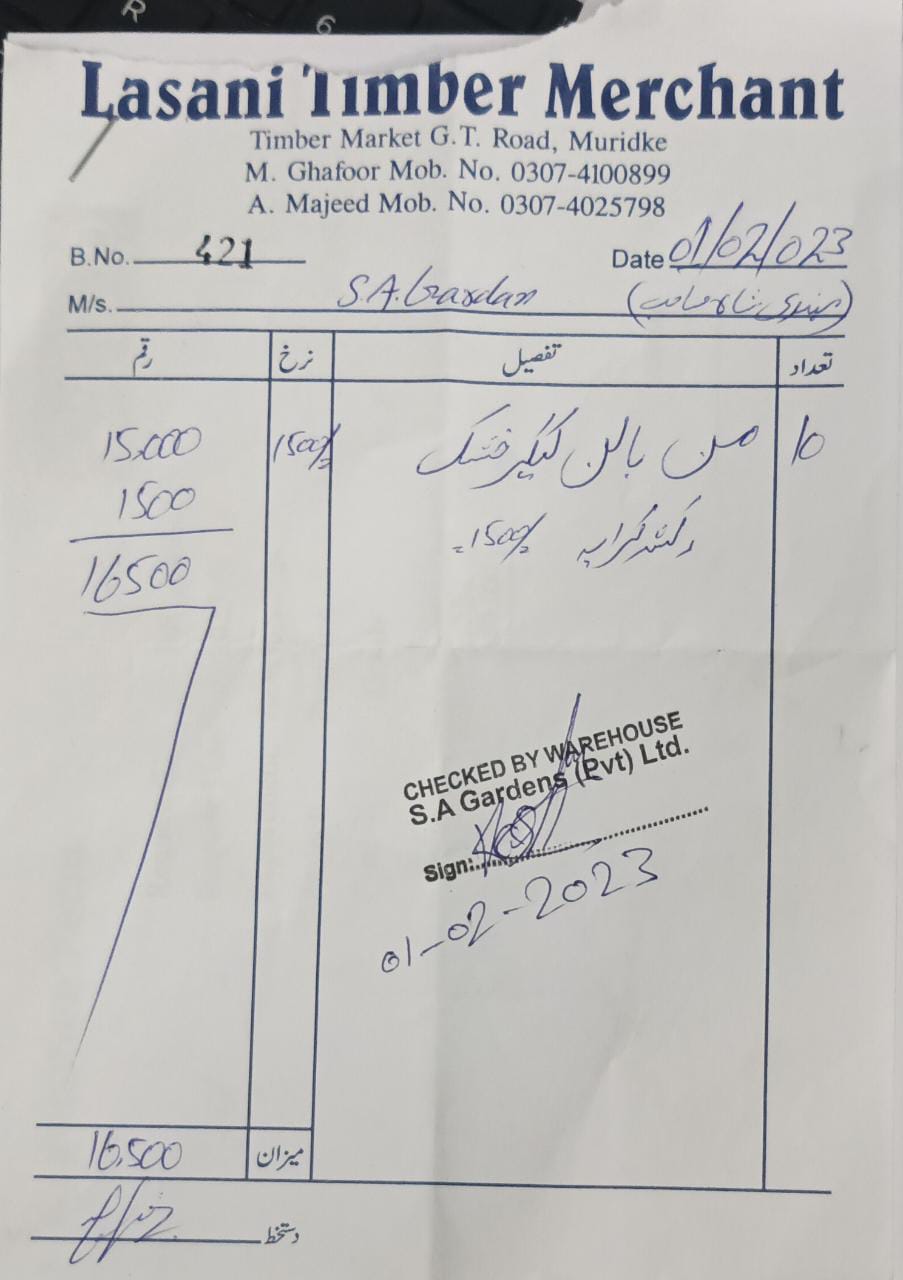 Lasani Timber Merchant
Timber Market G.T. Road, Muridke
M. Ghafoor Mob. No. 0307-4100899
A. Majeed Mob. No. 0307-4025798
B.No. 421 Date 01/02/023
M/s. S.A. Gardan
تعداد تفصیل نرخ رقم
10 من بالن کیکر خشک 1500/= 15,000
رکشہ کرایہ 1500/= 1500
16500
CHECKED BY WAREHOUSE
S.A Gardens (Pvt) Ltd.
Sign:
01-02-2023
میزان 16,500
دستخط